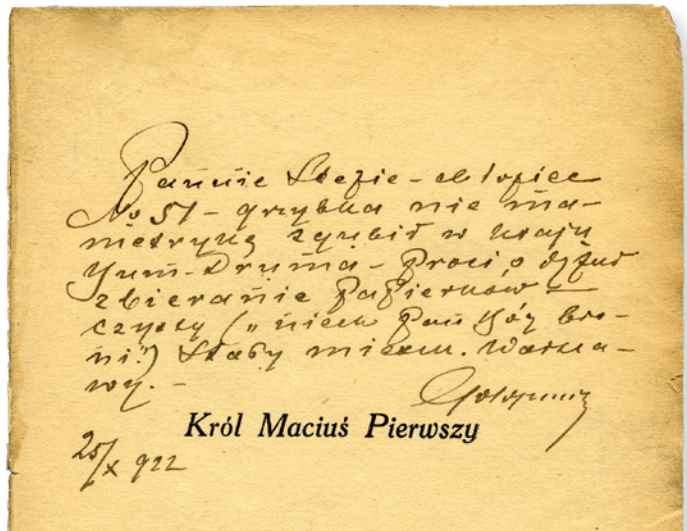 Pannie Stefie - chłopiec
No 51 - grzybka nie ma -
metrykę zgubił w kraju
Yum-Druma - Prosi o dyżur
zbieranie Papierków -
czysty („niech Pan Bóg bro-
ni.”) Stały mieszk. Warsza-
wy. -
Król Maciuś Pierwszy
25/X 922